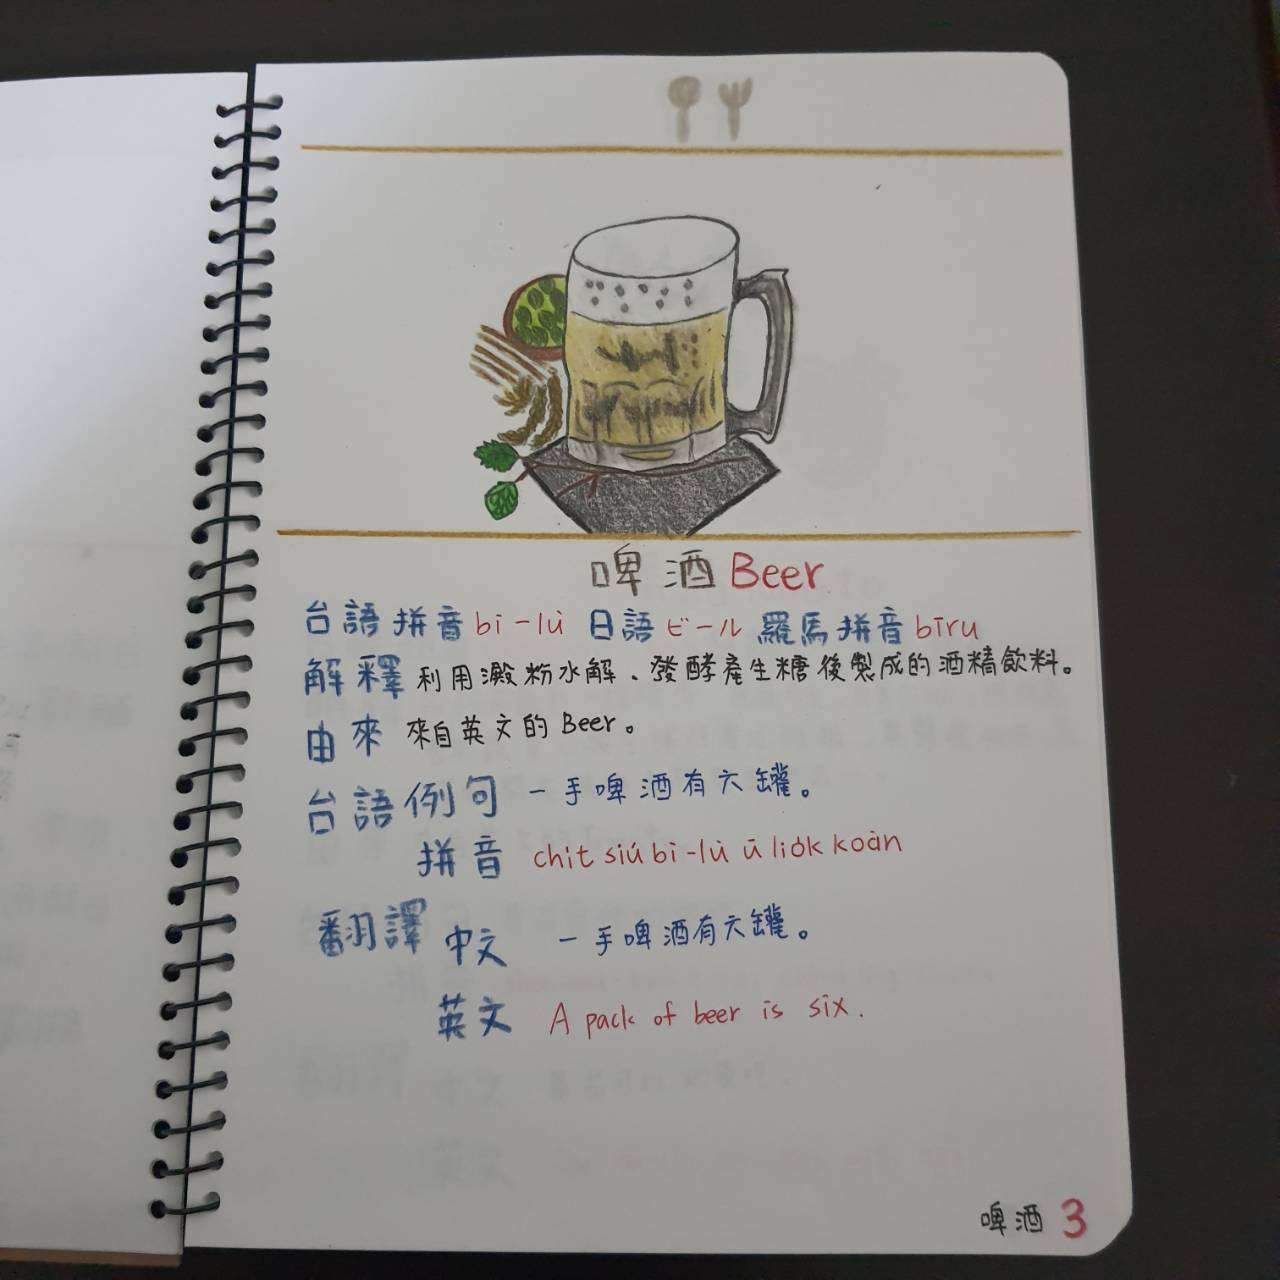 啤酒 Beer
台語拼音 bi-lù 日語 ビール 羅馬拼音 bīru
解釋 利用澱粉水解、發酵產生糖後製成的酒精飲料。
由來 來自英文的 Beer。
台語例句 一手啤酒有六罐。
拼音 chi̍t siú bì-lù ū lio̍k koàn
翻譯 中文 一手啤酒有六罐。
英文 A pack of beer is six.
啤酒 3